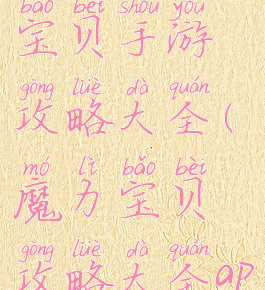 bǎo bèi shǒu yóu
宝贝手游
gōng lüè dà quán
攻略大全(
mó lì bǎo bèi
魔力宝贝
gōng lüè dà quán
攻略大全ap